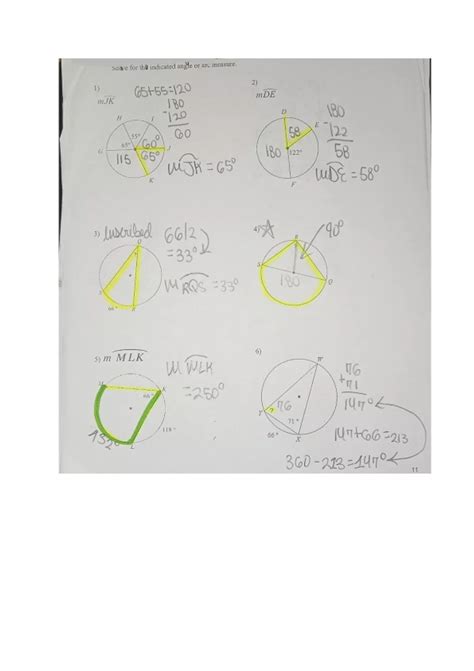 Solve for the indicated angle or arc measure.
1)
mJK
65+55=120
180
-120
60
H
I
55°
65°
60°
G
J
115
65°
K
mJK = 65°
2)
mDE
D
E
58
180
122°
F
180
-122
58
mDE = 58°
3) Inscribed
66/2
= 33°
m RQS = 33°
Q
66°
R
4)
90°
R
S
Q
180
5) m MLK
m MLK
= 250°
M
K
66°
132°
L
118°
6)
W
Y
76
71°
66°
X
76
+71
147°
147+66=213
360-213=147°
11